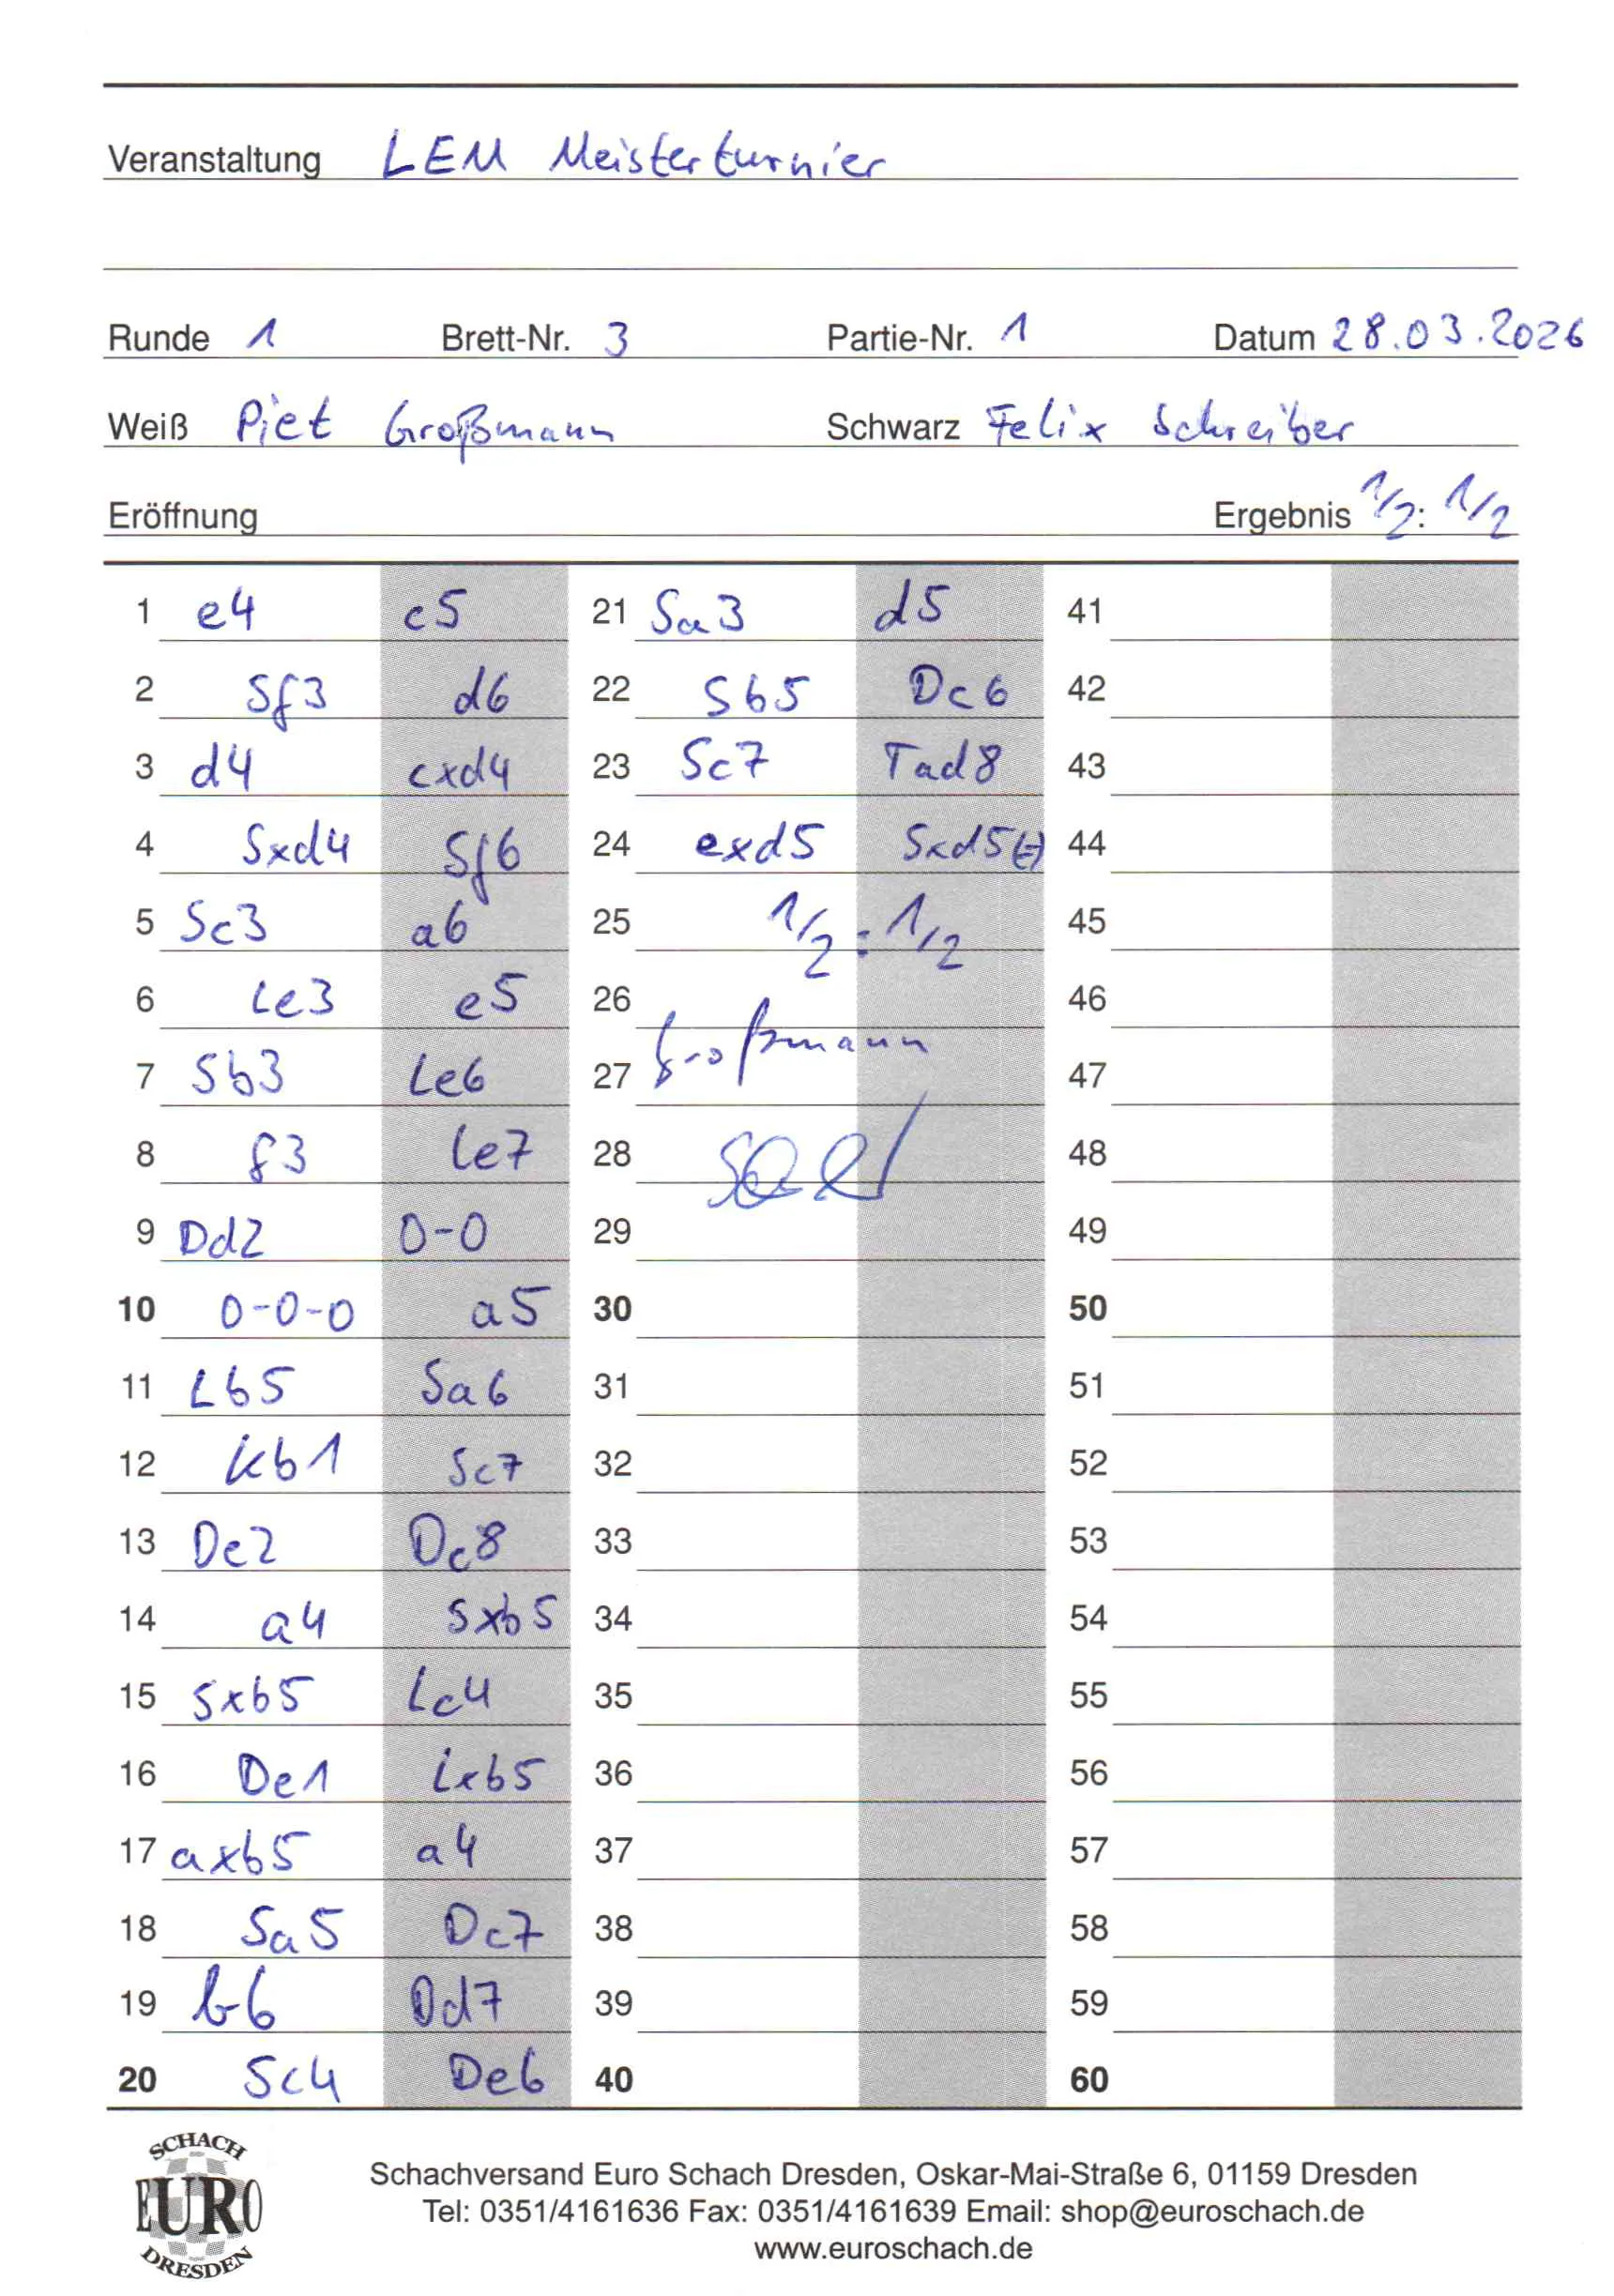 Veranstaltung LEM Meisterturnier
Runde 1 Brett-Nr. 3 Partie-Nr. 1 Datum 28.03.2026
Weiß Piet Großmann Schwarz Felix Schreiber
Eröffnung Ergebnis 1/2 : 1/2
1 e4 c5 21 Sa3 d5 41
2 Sf3 d6 22 Sb5 Dc6 42
3 d4 cxd4 23 Sc7 Tad8 43
4 Sxd4 Sf6 24 exd5 Sxd5(=) 44
5 Sc3 a6 25 1/2 : 1/2 45
6 Le3 e5 26 46
7 Sb3 Le6 27 Großmann 47
8 f3 Le7 28 48
9 Dd2 0-0 29 49
10 0-0-0 a5 30 50
11 Lb5 Sa6 31 51
12 Kb1 Sc7 32 52
13 De2 Dc8 33 53
14 a4 Sxb5 34 54
15 Sxb5 Lc4 35 55
16 De1 Lxb5 36 56
17 axb5 a4 37 57
18 Sa5 Dc7 38 58
19 b6 Dd7 39 59
20 Sc4 De6 40 60
SCHACH
EURO
DRESDEN
Schachversand Euro Schach Dresden, Oskar-Mai-Straße 6, 01159 Dresden
Tel: 0351/4161636 Fax: 0351/4161639 Email: shop@euroschach.de
www.euroschach.de